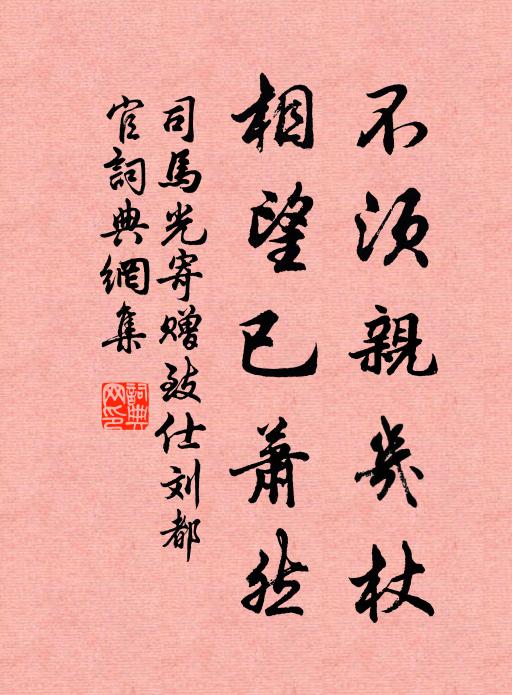 不须親几杖
相望已蕭然
司馬光寄赠致仕刘都
官詞典網集
詞典
网印